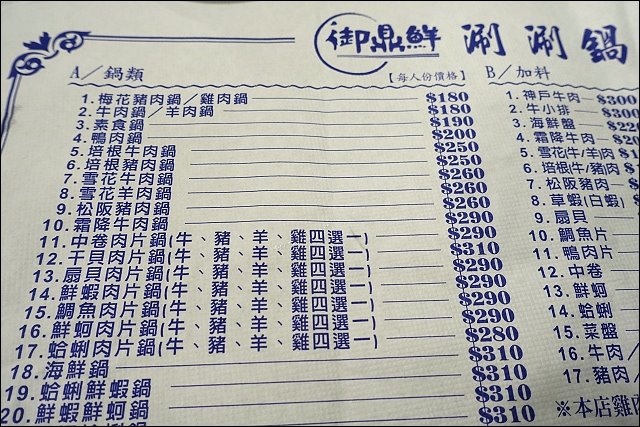 御鼎鮮 涮涮鍋
A／鍋類 【每人份價格】
1.梅花豬肉鍋／雞肉鍋 $180
2.牛肉鍋／羊肉鍋 $180
3.素食鍋 $190
4.鴨肉鍋 $200
5.培根牛肉鍋 $250
6.培根豬肉鍋 $250
7.雪花牛肉鍋 $260
8.雪花羊肉鍋 $260
9.松阪豬肉鍋 $260
10.霜降牛肉鍋 $290
11.中卷肉片鍋(牛、豬、羊、雞四選一) $290
12.干貝肉片鍋(牛、豬、羊、雞四選一) $310
13.扇貝肉片鍋(牛、豬、羊、雞四選一) $290
14.鮮蝦肉片鍋(牛、豬、羊、雞四選一) $290
15.鯛魚肉片鍋(牛、豬、羊、雞四選一) $290
16.鮮蚵肉片鍋(牛、豬、羊、雞四選一) $290
17.蛤蜊肉片鍋(牛、豬、羊、雞四選一) $280
18.海鮮鍋 $310
19.蛤蜊鮮蝦鍋 $310
20.鮮蝦鮮蚵鍋 $310
$310
B／加料
1.神戶牛肉 $300
2.牛小排 $300
3.海鮮盤
4.霜降牛肉
5.雪花(牛/羊)肉
6.培根(牛/豬
7.松阪豬肉
8.草蝦(白蝦)
9.扇貝
10.鯛魚片
11.鴨肉片
12.中卷
13.鮮蚵
14.蛤蜊
15.菜盤
16.牛肉／
17.豬肉／
※本店雞肉